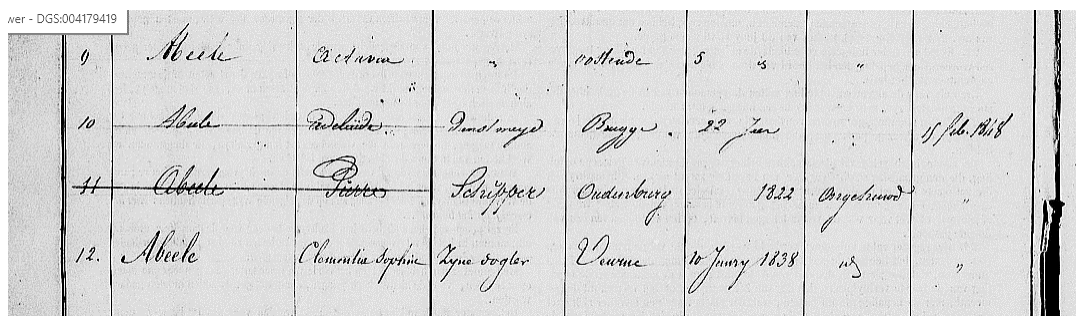 wer - DGS:004179419
9 Abeele Octavia " oostende 5 id "
"
10 Abeele Adelaïde. Dienstmeyd Brugge. 22 Juin " 15 feb. 1848
11 Abeele Pierre Schipper Oudenburg 1822 Ongehuwd "
12. Abeele Clementia Sophia Zyne dogter Veurne 10 Janry 1838 id "